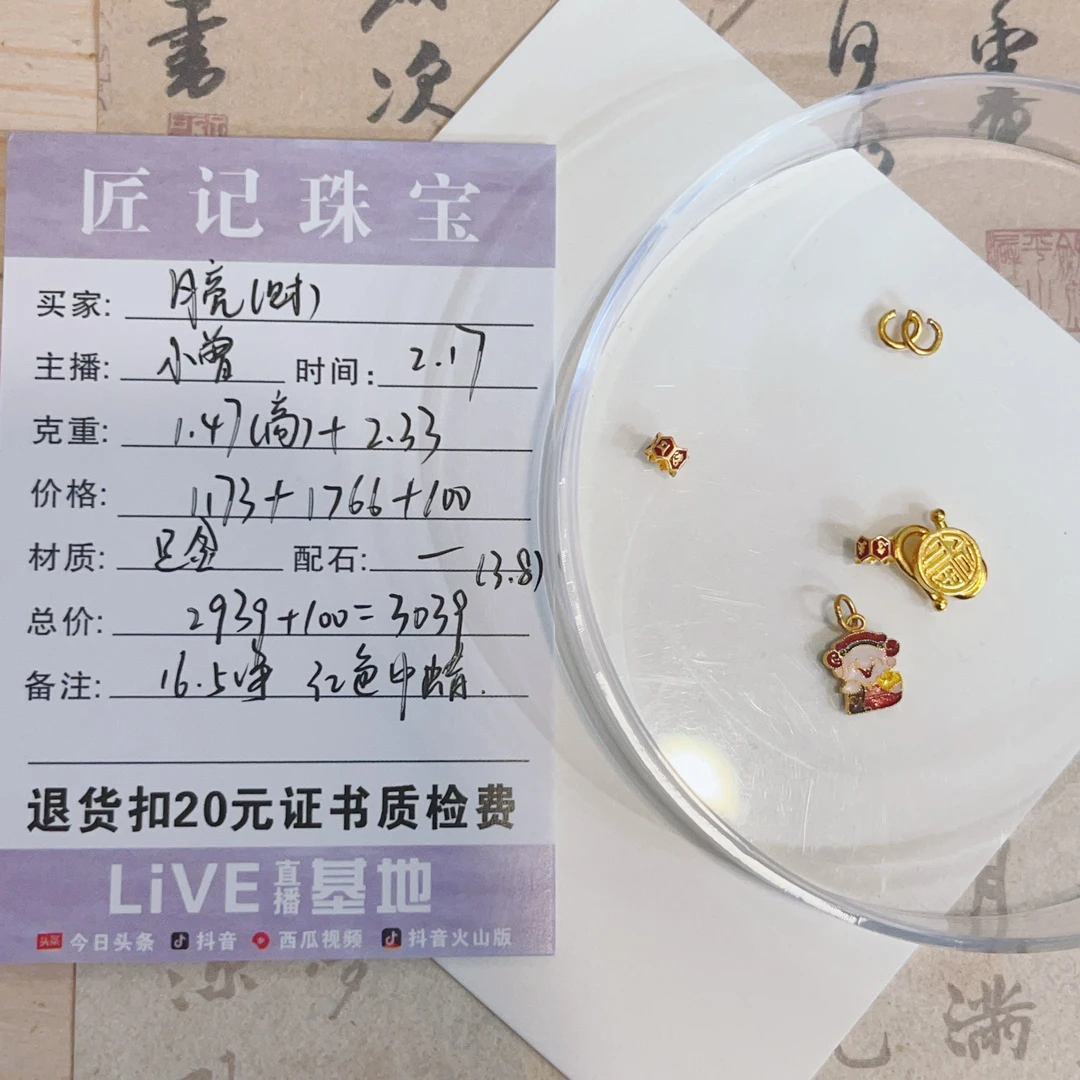 書
次
匠记珠宝
买家: 月亮(财)
主播: 小曾 时间: 2.17
克重: 1.47(高)+2.33
价格: 1173+1766+100
材质: 足金 配石: 一
(3.8)
总价: 2939+100=3039
备注: 16.5净 红色中蜡.
退货扣20元证书质检费
LiVE直播基地
头条 今日头条 抖音 西瓜视频 抖音火山版
福
满